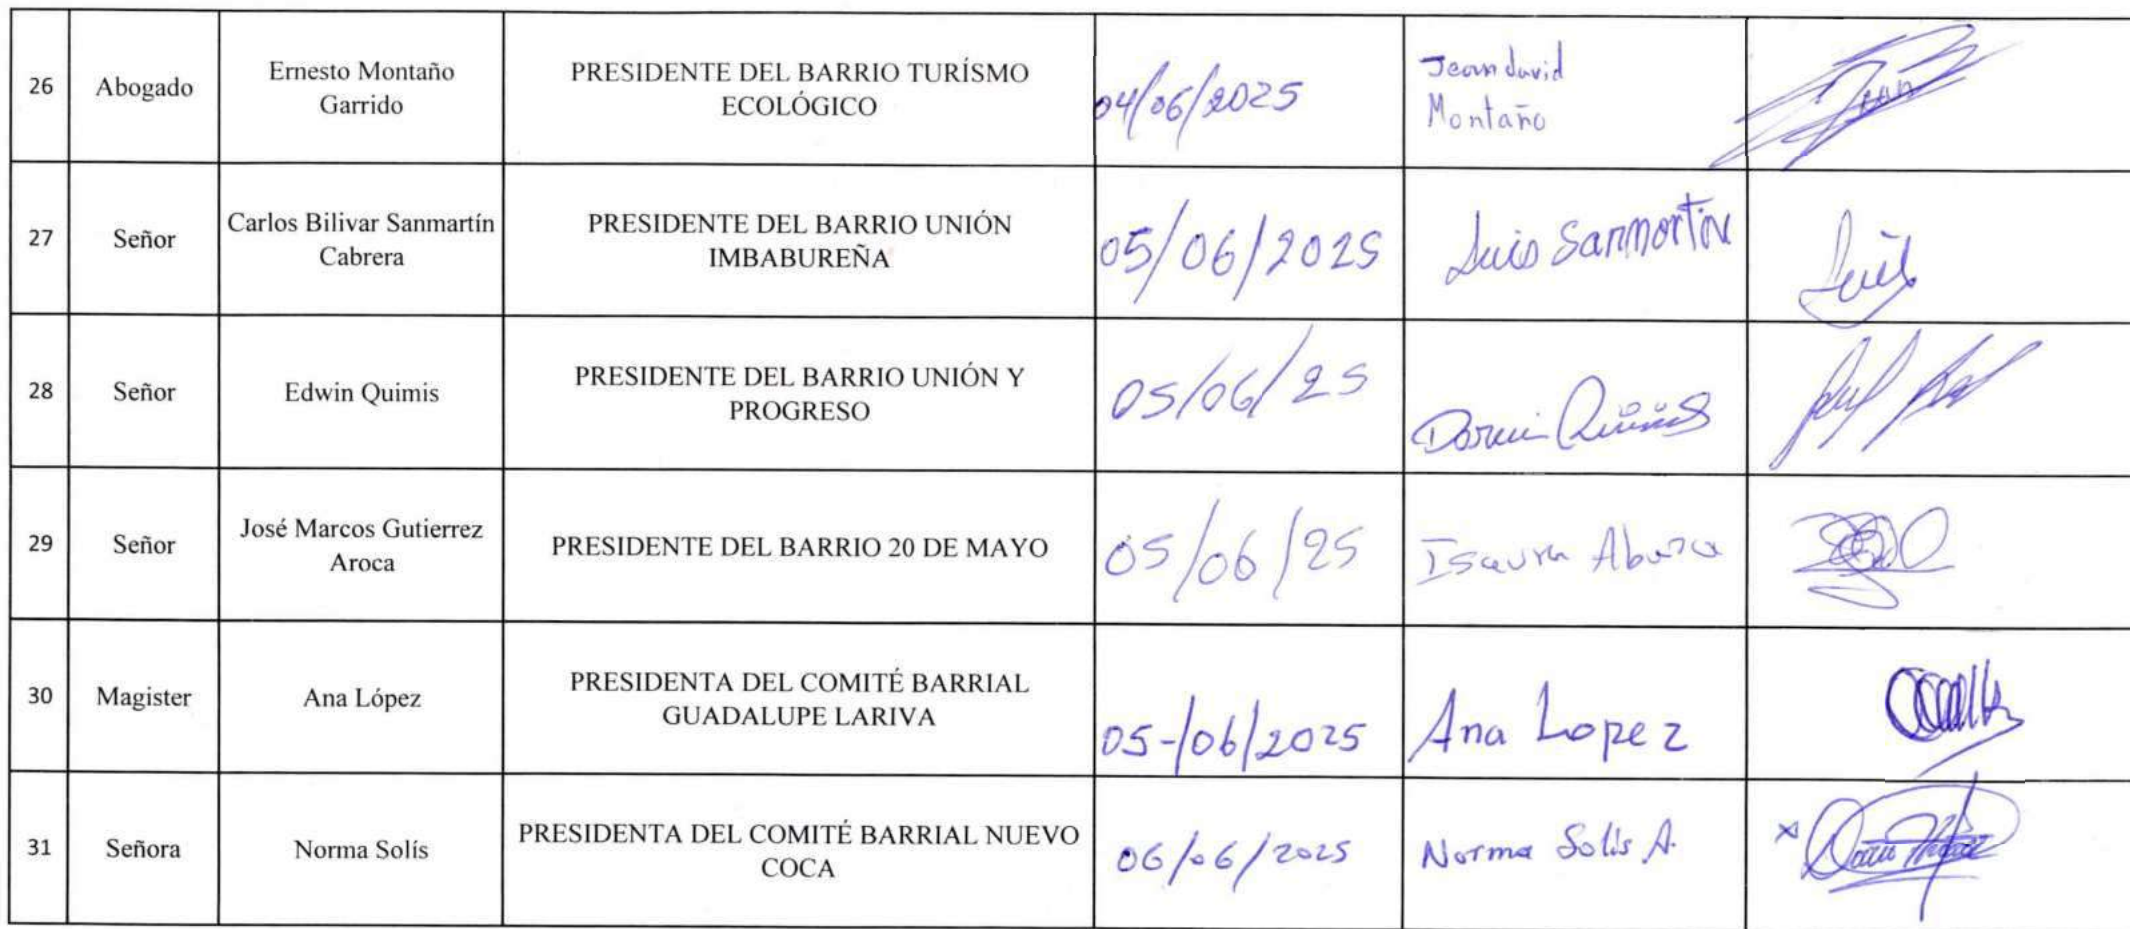 26 Abogado Ernesto Montaño Garrido PRESIDENTE DEL BARRIO TURÍSMO ECOLÓGICO 04/06/2025 Jeandavid Montaño Jean
27 Señor Carlos Bilivar Sanmartín Cabrera PRESIDENTE DEL BARRIO UNIÓN IMBABUREÑA 05/06/2025 Luis Sanmartin Luis
28 Señor Edwin Quimis PRESIDENTE DEL BARRIO UNIÓN Y PROGRESO 05/06/25
29 Señor José Marcos Gutierrez Aroca PRESIDENTE DEL BARRIO 20 DE MAYO 05/06/25 Isaura
30 Magister Ana López PRESIDENTA DEL COMITÉ BARRIAL GUADALUPE LARIVA 05-/06/2025 Ana Lopez
31 Señora Norma Solís PRESIDENTA DEL COMITÉ BARRIAL NUEVO COCA 06/06/2025 Norma Solís A.